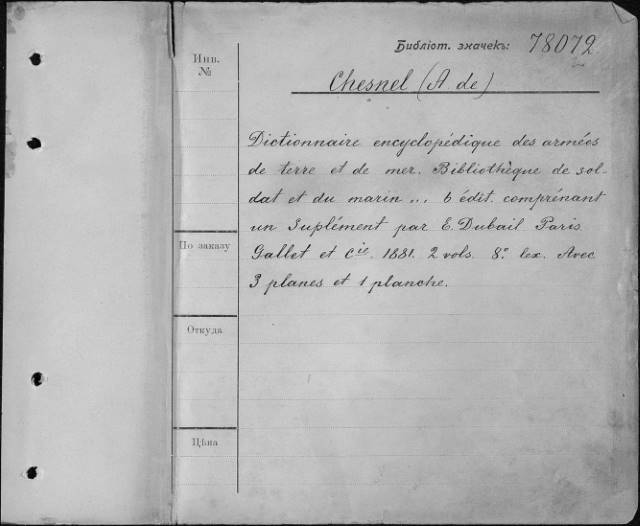 Библіот. значекъ: 78072
Инв.
№
Chesnel (A. de)
Dictionnaire encyclopédique des armées
de terre et de mer. Bibliothèque de sol-
dat et du marin ... 6 édit. comprénant
un Suplément par E. Dubail Paris
По заказу
Gallet et Cie. 1881. 2 vols. 8º lex. Avec
3 planes et 1 planche.
Откуда
Цѣна